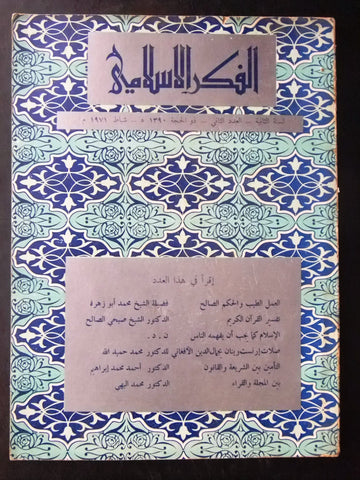 الفكر الإسلامي
السنة الثانية — العدد الثاني — ذو الحجة ١٣٩٠ ه — شباط ١٩٧١ م
إقرأ في هذا العدد
العمل الطيب والحكم الصالح فضيلة الشيخ محمد أبو زهرة
تفسير القرآن الكريم الدكتور الشيخ صبحي الصالح
الإسلام كما يجب أن يفهمه الناس ن . د .
صلات إرنست رينان بجمال الدين الأفغاني للدكتور محمد حميد الله
التأمين بين الشريعة والقانون الدكتور أحمد محمد إبراهيم
بين المجلة والقراء الدكتور محمد البهي